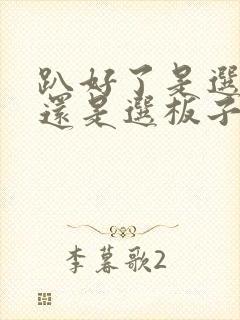 趴好了是選
還是選板子
李暮歌2